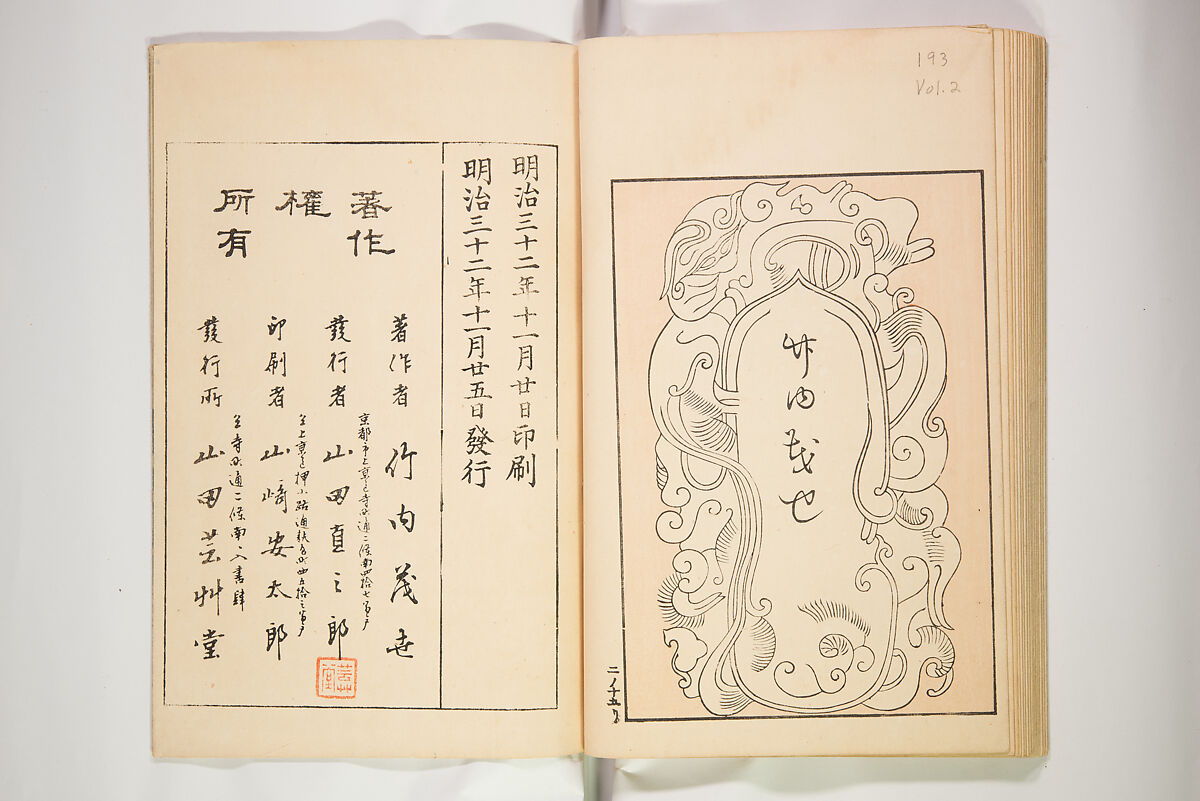 193
Vol.2
竹内茂世
二ノ十五
明治三十二年十一月廿日印刷
明治三十二年十一月廿五日發行
著作
權
所有
著作者 竹内茂世
京都市上京區寺町通二條南四拾七番戸
發行者 山田直之郎
仝上京區押小路通
印刷者 山﨑安太郎
仝寺町通二條南入書肆
發行所 山田芸艸堂
芸艸堂